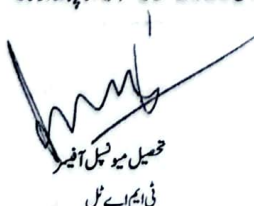 تحصیل میونسپل آفیسر
ٹی ایم اے ٹل